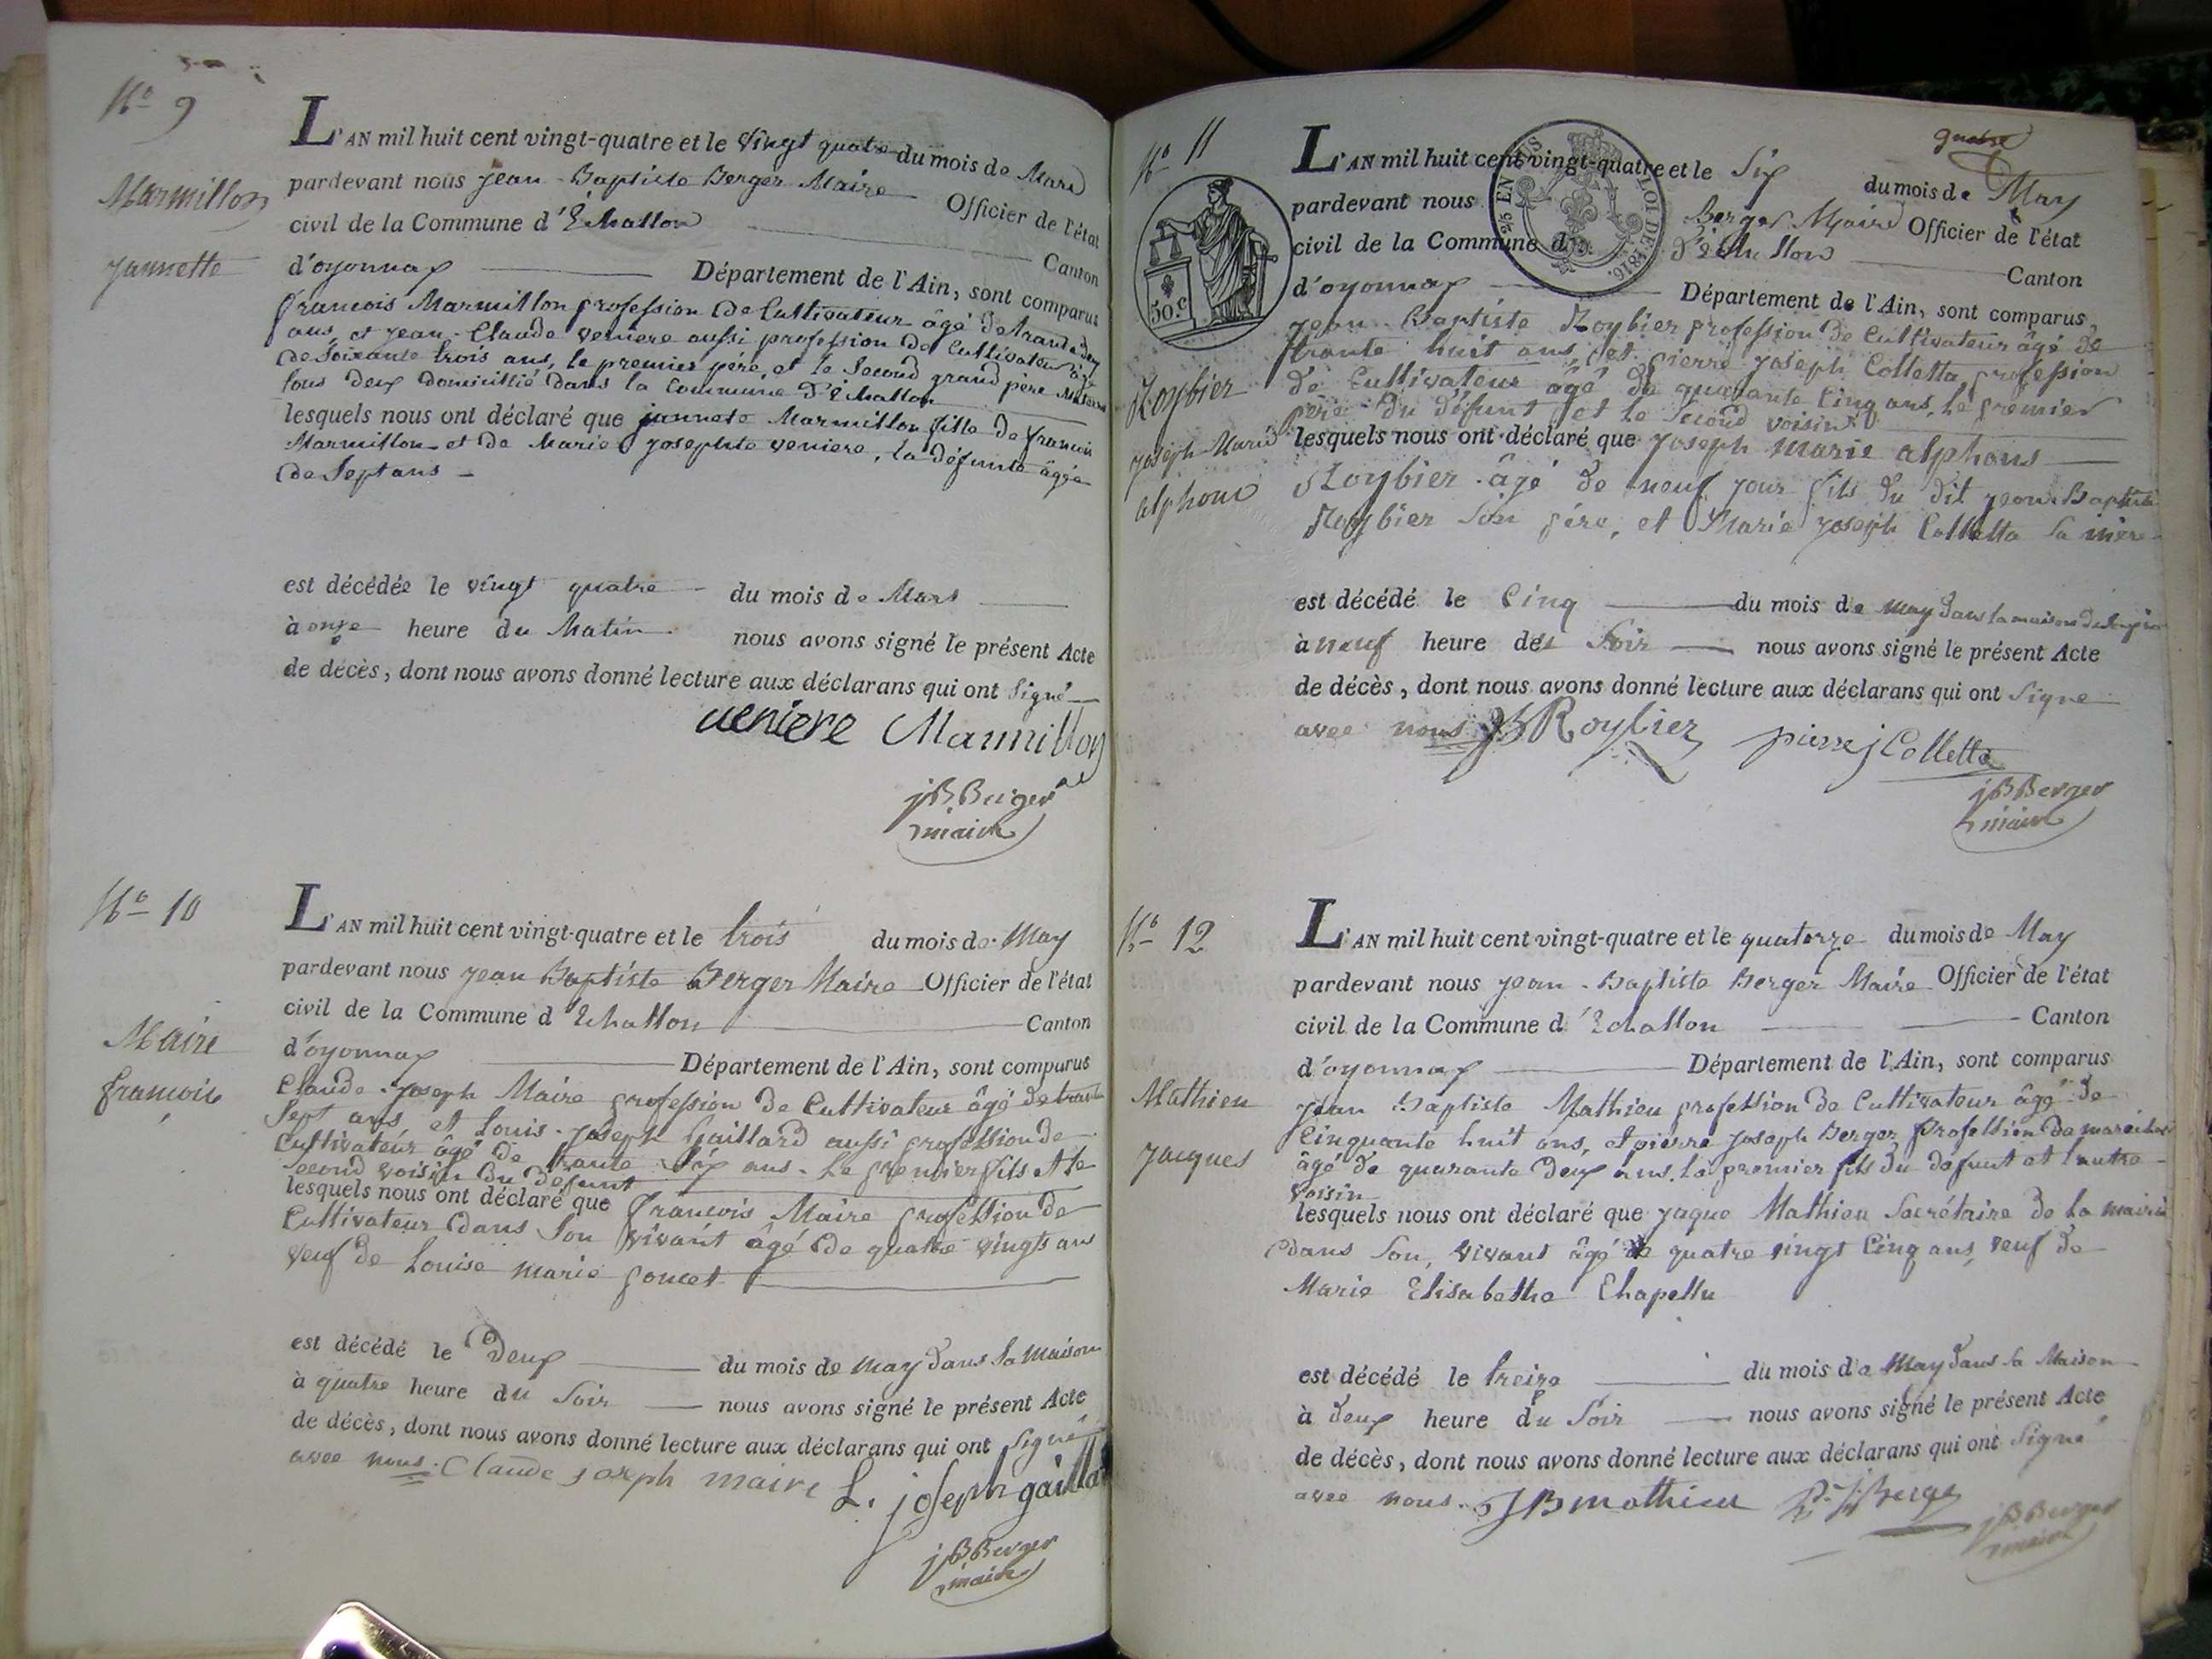 No 9
Marmillon
Jannette
L'AN mil huit cent vingt-quatre et le vingt quatre du mois de Mars
pardevant nous Jean-Baptiste Berger Maire Officier de l'état
civil de la Commune d'Echallon Canton
d'oyonnax Département de l'Ain, sont comparus
francois Marmillon profession de Cultivateur âgé de trante deux
ans, et Jean-Claude veniere aussi profession de Cultivateur âgé
de Soixante trois ans, le premier père, et le Second grand père
tous deux domicillié dans la Commune d'échallon
lesquels nous ont déclaré que jannete Marmillon fille de francois
Marmillon et de Marie Josephte veniere, la défunte âgée
de Sept ans -
est décédée le vingt quatre du mois de Mars
à onze heure du Matin nous avons signé le présent Acte
de décès, dont nous avons donné lecture aux déclarans qui ont signé
veniere Marmillon
jB Berger
maire
No 10
Maire
francois
L'AN mil huit cent vingt-quatre et le trois du mois de May
pardevant nous Jean Baptiste Berger Maire Officier de l'état
civil de la Commune d'Echallon Canton
d'oyonnax Département de l'Ain, sont comparus
Claude-Joseph Maire profession de Cultivateur âgé de trante
Sept ans et Louis-Joseph Gaillard aussi profession de
Cultivateur âgé de trante Six ans. Le premier fils et le
Second voisin du défunt
lesquels nous ont déclaré que francois Maire profession de
Cultivateur dans Son vivant âgé de quatre vingts ans
veuf de Louise marie poncet
est décédé le Deux du mois de may dans Sa maison
à quatre heure du Soir nous avons signé le présent Acte
de décès, dont nous avons donné lecture aux déclarans qui ont Signé
avec nous. Claude joseph maire L. joseph gaillard
jB Berger
maire
quatre
No 11
50 c
25 EN SUS
LOI DE 1816.
Roybier
Joseph Marie
alphons
L'AN mil huit cent vingt-quatre et le Six du mois de May
pardevant nous Berger Maire Officier de l'état
civil de la Commune d d'échallon Canton
d'oyonnax Département de l'Ain, sont comparus
Jean-Baptiste Roybier profession de Cultivateur âgé de
trante huit ans, et pierre Joseph Colletta profession
de Cultivateur âgé de quarante Cinq ans, Le premier
père du défunt et le Second voisin
lesquels nous ont déclaré que Joseph Marie alphons
Roybier âgé de neuf jour fils du dit Jean-Baptiste
Roybier Son père, et Marie Joseph Colletta Sa mère
est décédé le Cinq du mois de may dans la maison de
à neuf heure du Soir nous avons signé le présent Acte
de décès, dont nous avons donné lecture aux déclarans qui ont Signé
avec nous JB Roybier pierre j Colletta
jB Berger
maire
No 12
Mathieu
Jacques
L'AN mil huit cent vingt-quatre et le quatorze du mois de May
pardevant nous Jean-Baptiste Berger Maire Officier de l'état
civil de la Commune d'Echallon Canton
d'oyonnax Département de l'Ain, sont comparus
Jean Baptiste Mathieu profession de Cultivateur âgé de
Cinquante huit ans, et pierre Joseph Berger profession de
âgé de quarante Deux ans. Le premier fils du défunt et l'autre
voisin
lesquels nous ont déclaré que Jaque Mathieu Secrétaire de la mairie
dans Son vivant âgé de quatre vingt Cinq ans, veuf de
Marie Elisabethe Chapellu
est décédé le treize du mois de May dans Sa Maison
à deux heure du Soir nous avons signé le présent Acte
de décès, dont nous avons donné lecture aux déclarans qui ont Signé
avec nous. JB mathieu P. J. Berge
jB Berger
maire